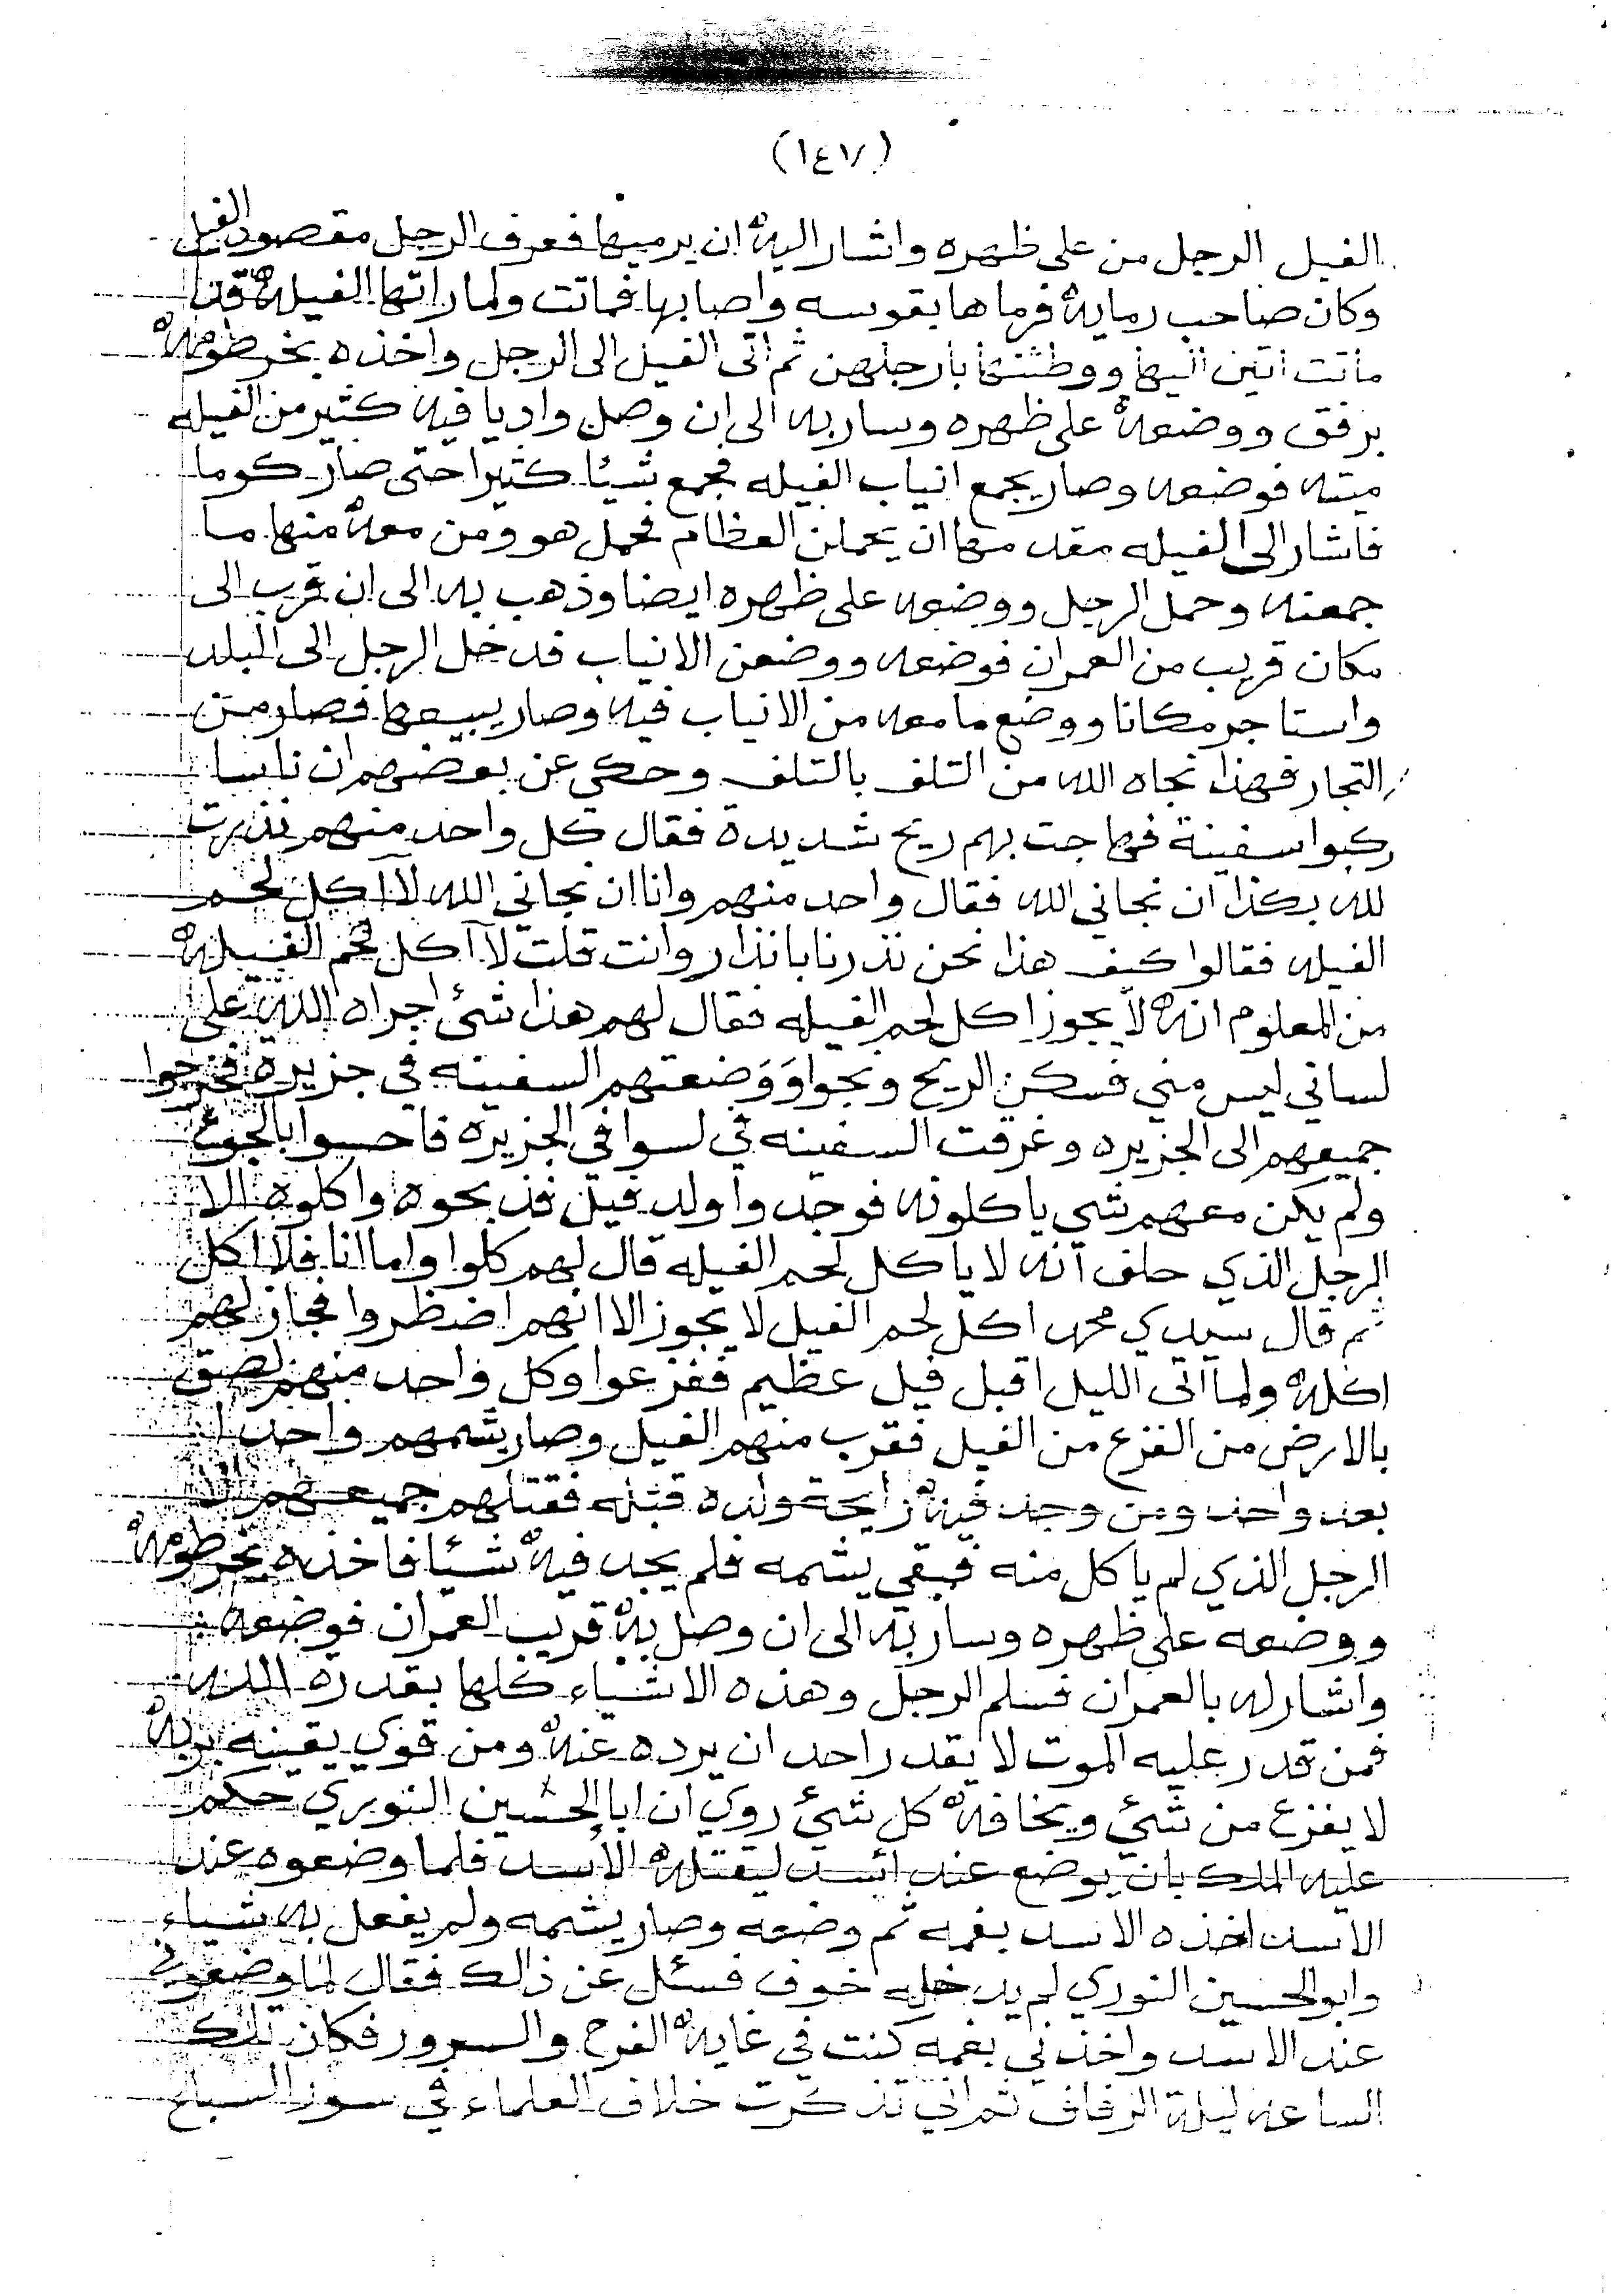 (١٤٧)
الفيل الرجل من على ظهره واشار اليه ان يرميها فعرف الرجل مقصود الفيل
وكان صاحب رمايه فرماها بقوسه واصابها فماتت ولما راتها الفيله قد
ماتت اتين اليها ووطئنها بارجلهن ثم اتى الفيل الى الرجل واخذه بخرطومه
برفق ووضعه على ظهره وسار به الى ان وصل واديا فيه كثير من الفيله
ميته فوضعه وصار يجمع انياب الفيله فجمع شيئا كثيرا حتى صار كوما
فاشار الى الفيله مقدمها ان يحملن العظام فحمل هو ومن معه منها ما
جمعته وحمل الرجل ووضعه على ظهره ايضا وذهب به الى ان قرب الى
مكان قريب من العمران فوضعه ووضعن الانياب فدخل الرجل الى البلد
واستاجر مكانا ووضع ما معه من الانياب فيه وصار يبيعها فصار من
التجار فهذا نجاه الله من التلف بالتلف وحكي عن بعضهم ان ناسا
ركبوا سفينة فهاجت بهم ريح شديدة فقال كل واحد منهم نذرت
لله بكذا ان نجاني الله فقال واحد منهم وانا ان نجاني الله لا آكل لحم
الفيله فقالوا كيف هذا نحن نذرنا بانذار وانت قلت لا آكل لحم الفيله
من المعلوم انه لا يجوز اكل لحم الفيله فقال لهم هذا شئ اجراه الله على
لساني ليس مني فسكن الريح ونجوا وَوَضعتهم السفينه في جزيره فخرجوا
جميعهم الى الجزيره وغرقت السفينه في لسوا في الجزيره فاحسوا بالجوع
ولم يكن معهم شي ياكلونه فوجدوا ولد فيل فذبحوه واكلوه الا
الرجل الذي حلف انه لا ياكل لحم الفيله قال لهم كلوا واما انا فلا اكل
ثم قال سيدي محمد اكل لحم الفيل لا يجوز الا انهم اضظروا فجاز لهم
اكله ولما اتى الليل اقبل فيل عظيم ففزعوا وكل واحد منهم لصق
بالارض من الفزع من الفيل فقرب منهم الفيل وصار يشمهم واحدا
بعد واحد ومن وجد فيه رايحة ولده قتله فقتلهم جميعهم الا
الرجل الذي لم ياكل منه فبقي يشمه فلم يجد فيه شيئا فاخذه بخرطومه
ووضعه على ظهره وسار به الى ان وصل به قريب العمران فوضعه
واشار له بالعمران فسلم الرجل وهذه الاشياء كلها بقدره الله
فمن قدر عليه الموت لا يقدر احد ان يرده عنه ومن قوي يقينه بربه
لا يفزع من شئ ويخافه كل شئ روي ان ابا الحسين النوري حكم
عليه الملك بان يوضع عند اسد ليقتله الأسد فلما وضعوه عند
الاسد اخذه الاسد بفمه ثم وضعه وصار يشمه ولم يفعل به شياء
وابو الحسين النوري لم يدخله خوف فسئل عن ذالك فقال لما وضعوني
عند الاسد واخذني بفمه كنت في غايه الفرح والسرور فكان تلك
الساعه ليلة الزفاف ثم اني تذكرت خلاف العلماء في سور السباع